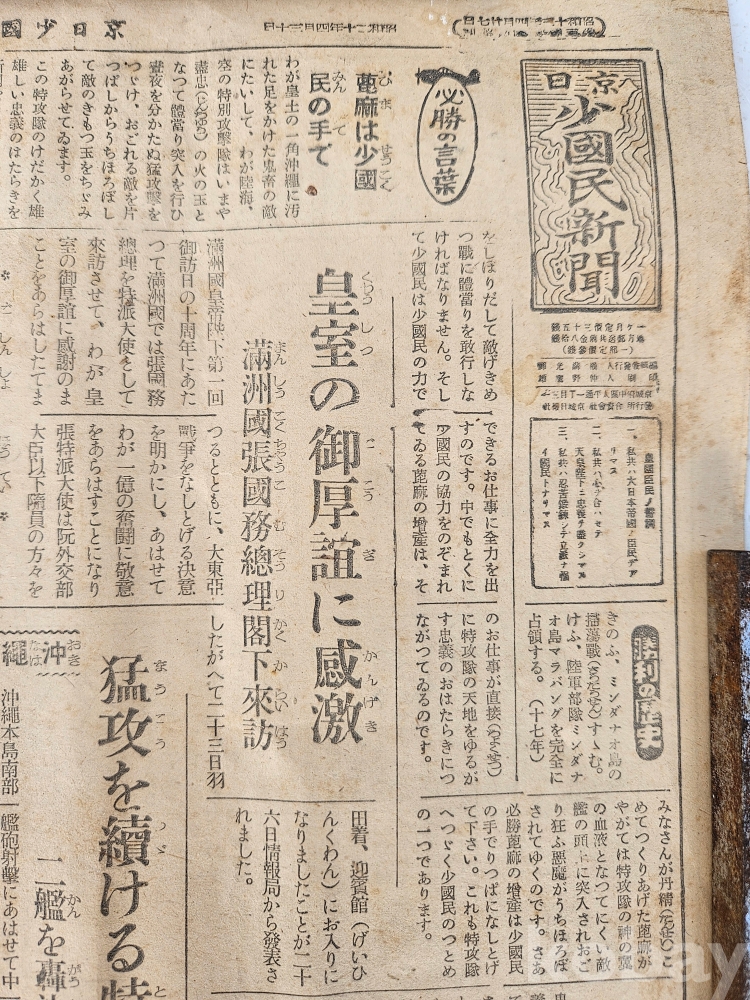 京日少國
昭和二十年四月三十日
京日
少國民新聞
一ケ月定價三十五錢
皇國臣民ノ誓詞
一、私共ハ大日本帝國ノ臣民デア
リマス
二、私共ハ心ヲ合ハセテ
天皇陛下ニ忠義ヲ盡シマス
三、私共ハ忍苦鍛鍊シテ立派ナ強
イ國民トナリマス
勝利の歴史
きのふ、ミンダナオ島の
掃蕩戰(さうたうせん)すゝむ。
けふ、陸軍部隊ミンダナ
オ島マラバングを完全に
占領する。(十七年)
必勝の言葉
蓖麻は少國
民の手で
わが皇土の一角沖繩に汚
れた足をかけた鬼畜の敵
にたいして、わが陸海、
空の特別攻擊隊はいまや
盡忠(じんちゆう)の火の玉と
なつて體當り突入を行ひ
晝夜を分かたぬ猛攻擊を
つゞけ、おごれる敵を片
つぱしからうちほろぼし
て敵のきもつ玉をちゞみ
あがらせてゐます。
この特攻隊のけだかく雄
雄しい忠義のはたらきを
をしぼりだして敵げきめ
つ戰に體當りを敢行しな
ければなりません。そし
て少國民は少國民の力で
できるお仕事に全力を出
すのです。中でもとくに
少國民の協力をのぞまれ
てゐる蓖麻の增產は、そ
のお仕事が直接(ちよくせつ)
に特攻隊の天地をゆるが
す忠義のおはたらきにつ
ながつてゐるのです。
みなさんが丹精(たんせい)こ
めてつくりあげた蓖麻が
やがては特攻隊の神の翼
の血液となつてにくい敵
艦の頭上に突入されおご
り狂ふ惡魔がうちほろぼ
されてゆくのです。さあ
必勝蓖麻の增產は少國民
の手でりつぱになしとげ
て下さい。これも特攻隊
へつゞく少國民のつとめ
の一つであります。
皇室の御厚誼に感激
滿洲國張國務總理閣下來訪
滿洲國皇帝陛下第一回
御訪日の十周年にあた
つて滿洲國では張國務
總理を特派大使として
來訪させて、わが皇
室の御厚誼に感謝のま
ことをあらはしたてま
つるとともに、大東亞
戰爭をなしとげる決意
を明かにし、あはせて
わが一億の奮鬪に敬意
をあらはすことになり
張特派大使は阮外交部
大臣以下隨員の方々を
したがへて二十三日羽
田着、迎賓館(げいひ
んくわん)にお入りに
なりましたことが二十
六日情報局から發表さ
れました。
猛攻を續ける特
二艦を轟
沖繩
沖繩本島南部
艦砲射擊にあはせて中